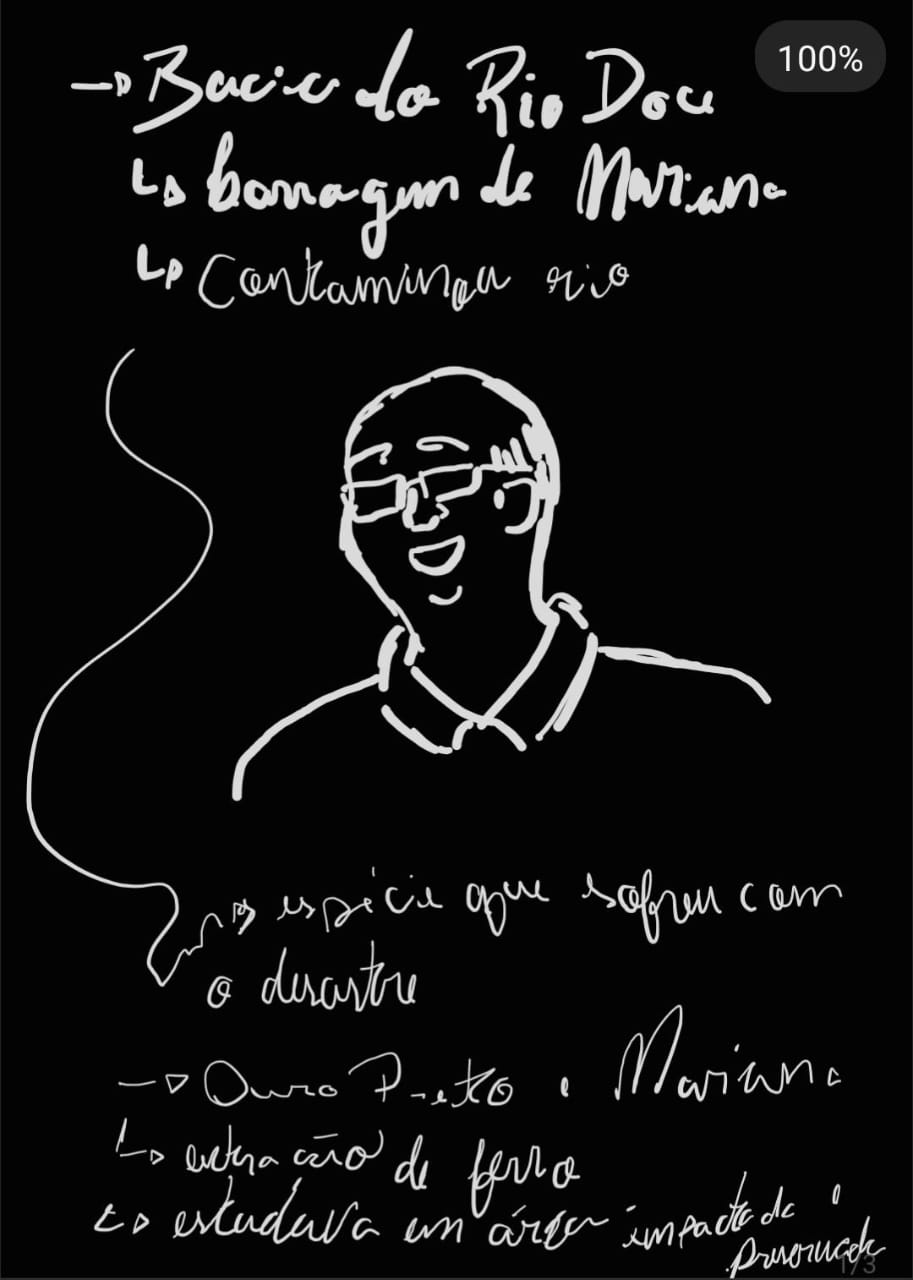 100%
→ Bacia do Rio Doce
↳ barragem de Mariana
↳ Contaminou rio
→ espécie que sofreu com
o desastre
→ Ouro Preto e Mariana
↳ extração de ferro
↳ estudava em área impactada e
preservada
1/3